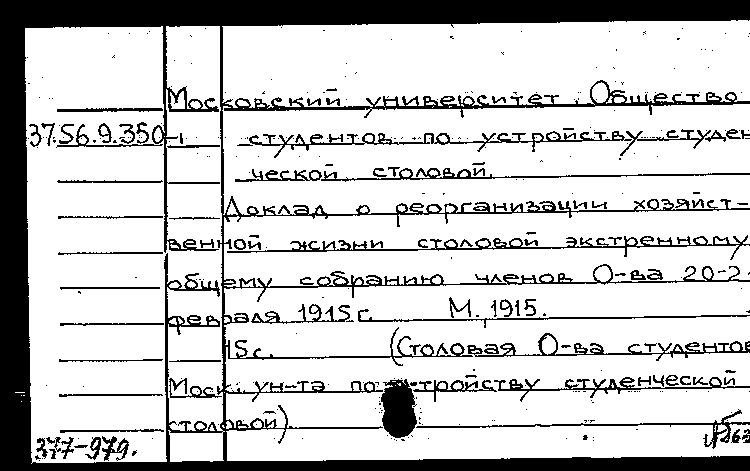 Московский университет. Общество
37.56.9.350-1 студентов по устройству студен
ческой столовой.
Доклад о реорганизации хозяйст-
венной жизни столовой экстренному
общему собранию членов О-ва 20-2
февраля 1915 г. М., 1915.
15 с. (Столовая О-ва студентов
Моск. ун-та по студенческой
столовой)
377-979.